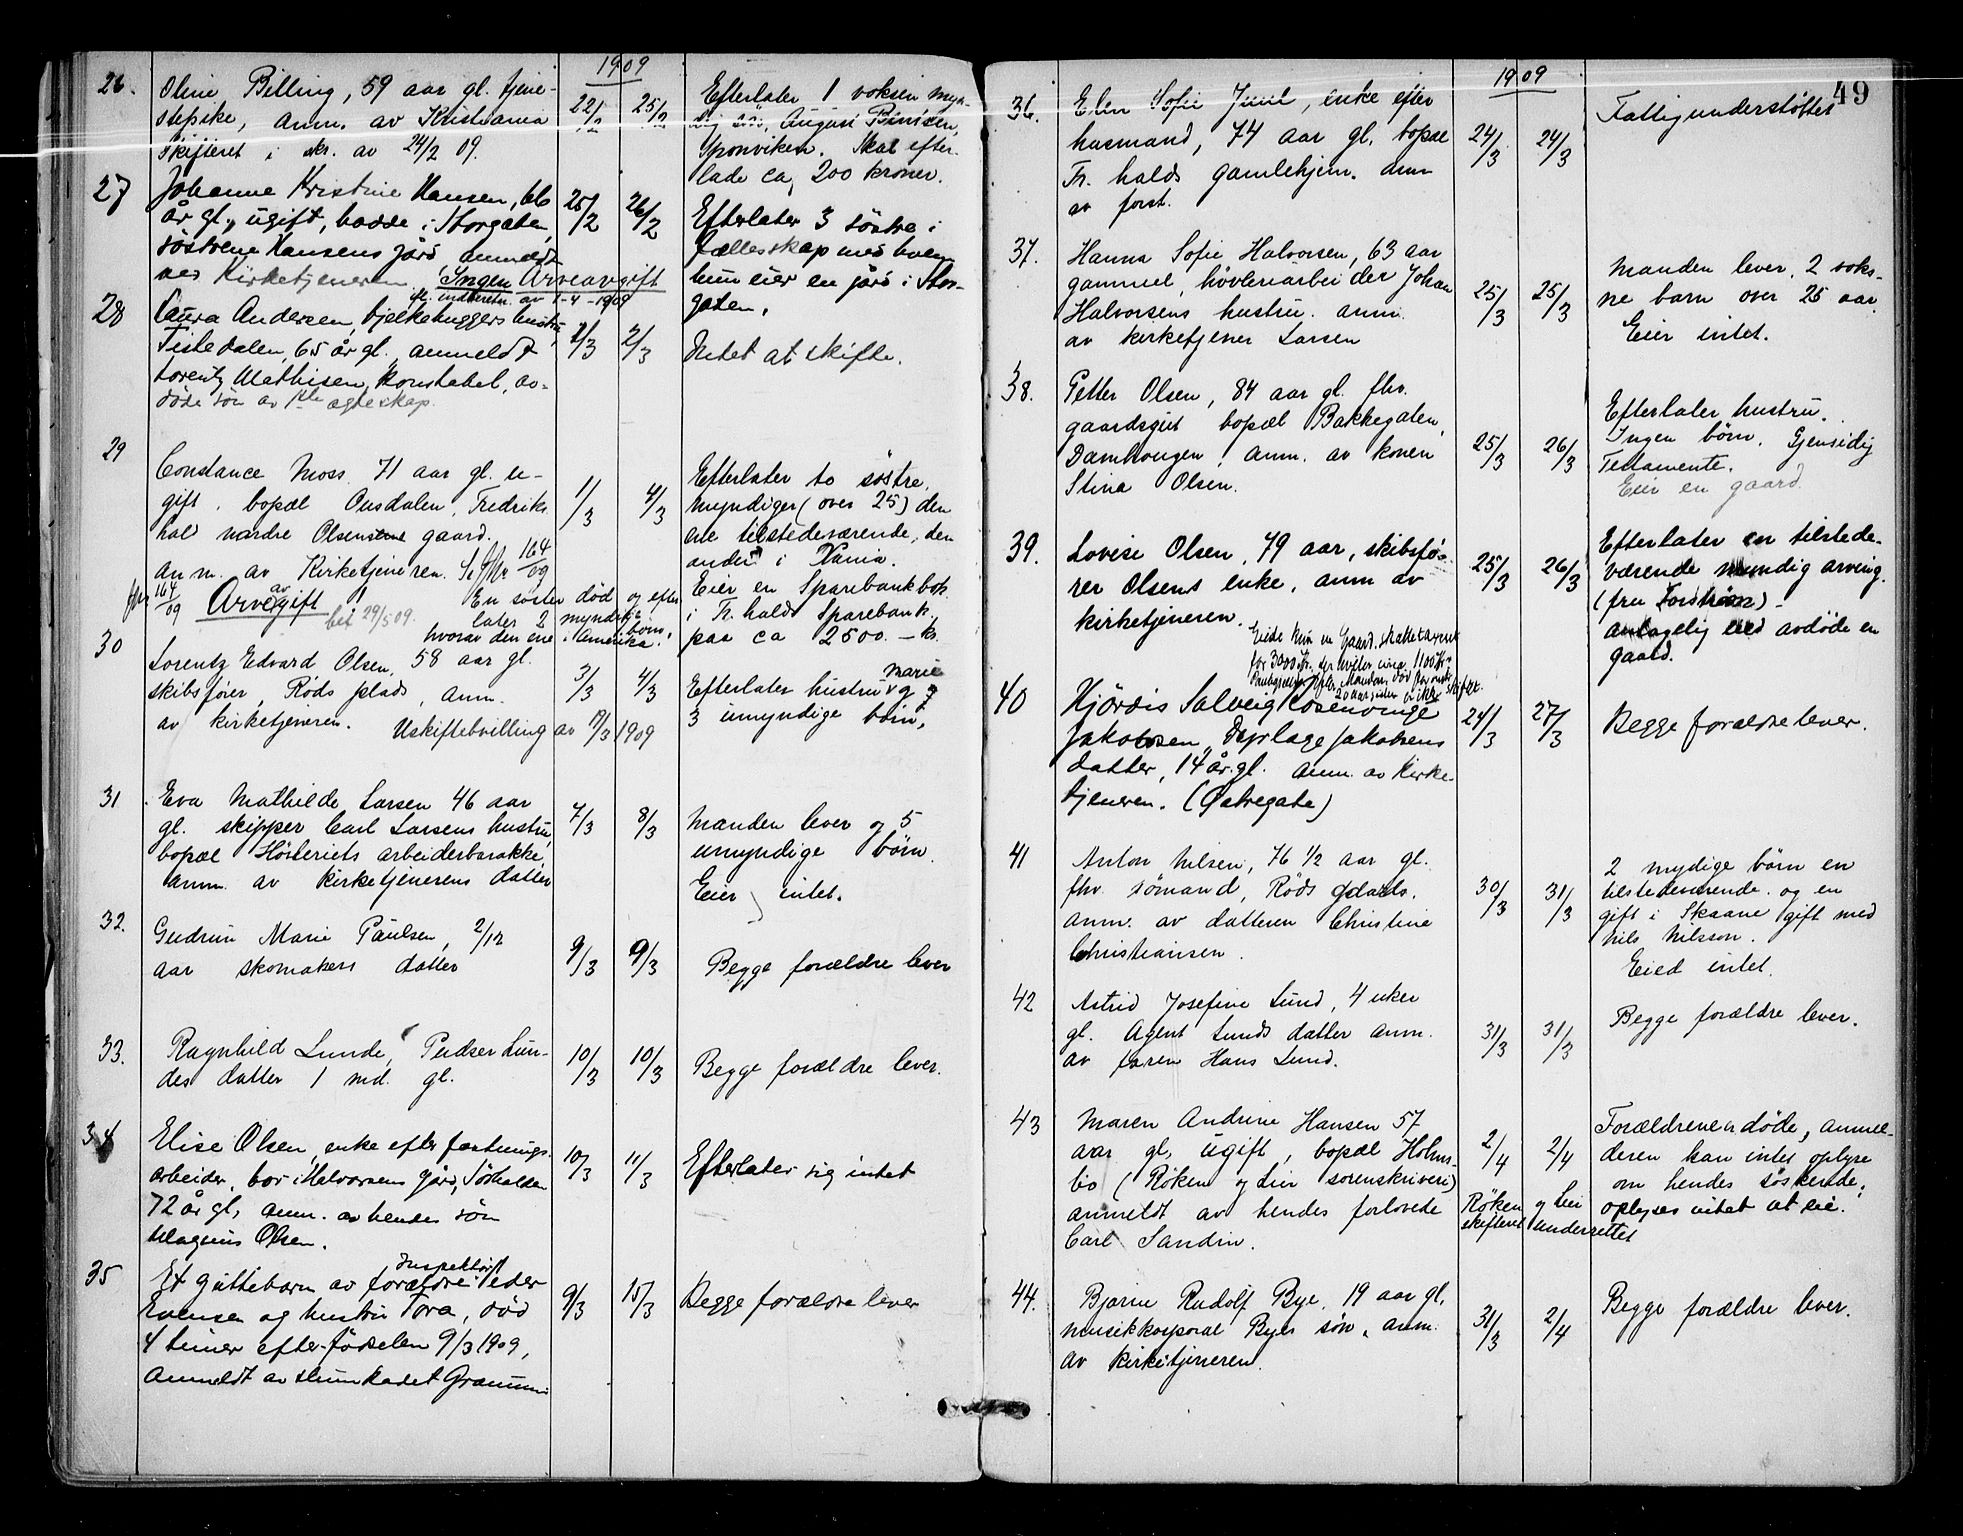 1909
26. Oline Billing, 59 aar gl. tjene- 22/2 25/2 Efterlater 1 voksen myn-
stepike, anm. av Kristiania dig søn, August
Skifteret i skr. av 24/2 09. Sponviken. Skal efter-
lade ca. 200 kroner.
27 Johanne Kristine Hansen, 66 25/2 26/2
år gl., ugift, bodde i Storgaten, Efterlater 3 söstre i
söstrene Hansens gård anmeldt fællesskap med hvem
ved Kirketjeneren. Ingen Arveavgift hun eier en gård i Stor-
fl. indberetn. av 1-4-1909 gaten.
28 Laura Andersen, bjelkehuggers hustru,
Tistedalen, 65 år gl., anmeldt 2/3 2/3 Intet at skifte.
Lorentz Mathisen, konstabel, av-
døde søn av 1ste ægteskap.
29 Constance Moss 71 aar gl. u- 1/3 4/3 Efterlater to søstre,
gift, bopæl Ousdalen, Fredriks myndiger (over 25) den
hal nordre Olsens gaard. ene tilstedeværende, den
anm. av Kirketjeneren. 164/09 anden i Xania.
164/09 Arveavgift bet 29/5 09. Eier en Sparebankbok
En søster død og efter i Fr.halds Sparebank
later 2 myndige børn, paa ca 2500.- kr.
hvorav den ene i Amerika.
30 Lorentz Edvard Olsen, 58 aar gl. 3/3 4/3
skibsfører, Røds plads, anm. Efterlater hustru Marie og
av kirketjeneren. Uskiftebevilling av 19/3 1909 3 umyndige børn.
31 Eva Mathilde Larsen 46 aar 7/3 8/3 Manden lever og 5
gl. skipper Carl Larsens hustru, umyndige børn.
bopæl Hösleriets arbeiderbarakke, Eier intet.
anm. av kirketjenerens datter
32. Gudrun Marie Paulsen, 2/12 9/3 9/3 Begge forældre lever
aar skomakers datter
33. Ragnhild Lunde, Pudser Lun- 10/3 10/3 Begge forældre lever.
des datter 1 md. gl.
34 Elise Olsen, enke efter fæstnings- 10/3 11/3 Efterlater sig intet
arbeider, bor i Halvorsens gård, Sörhalden
72 år gl, anm. av hendes sön
Magnus Olsen.
35 Et guttebarn av forældre Inspektør Peder 9/3 15/3 Begge forældre lever
Evensen og hustru Tora, död
4 timer efter födselen 9/3 1909,
Anmeldt av slumkadet
49
1909
36. Elen Sofie Juul, enke efter 24/3 24/3 Fattigunderstøttet
husmand, 74 aar gl. bopæl
Fr. halds gamlehjem. anm
av forst.
37. Hanna Sofie Halvorsen, 63 aar 25/3 25/3 Manden lever, 2 voks-
gammel, høvleriarbeider Johan ne barn over 25 aar
Halvorsens hustru. anm. Eier intet.
av kirketjener Larsen
38. Petter Olsen, 84 aar gl. fhv. 25/3 26/3 Efterlater hustru.
gaardsgut bopæl Bakkegaten, Ingen børn. Gjensidig
Damhougen, anm. av konen Testamente.
Stina Olsen. Eier en gaard.
39. Lovise Olsen, 79 aar, skibsfø- 25/3 26/3 Efterlater en tilstede-
rer Olsens enke, anm av værende myndig arving.
kirketjeneren. (fru Forström) -
Eide kun en Gaard, skattetaxeret antagelig eied avdøde en
for 3000 Kr. der hviler circa 1100 Kr. gaard.
20 aar siden er ikke skiftet.
40 Hjördis Solveig Rosenvinge 24/3 27/3 Begge forældre lever.
Jakobsen, Jakobsens
datter, 14 år gl. anm. av Kirke-
tjeneren. (Østregate)
41 Anton Nilsen, 76 1/2 aar gl. 30/3 31/3 2 mydige börn en
fhv. sømand, Røds plads. tilstedeværende og en
anm. av datteren Christine gift i Skaane gift med
Christiansen. Nils Nilsson.
Eied intet.
42 Astrid Josefine Lund, 4 uker 31/3 31/3 Begge forældre lever.
gl. Agent Lunds datter anm.
av faren Hans Lund.
43 Maren Andrine Hansen 57 2/4 2/4 Forældrene er døde, anmel-
aar gl. ugift, bopæl Holms- deren kan intet oplyse
bo (Røken og Lier sorenskriveri) om hendes søskende,
anmeldt av hendes forlovede oplyses intet at eie.
Carl Sandin. Røken og Lier skifteret underrettet
44. Bjarne Rudolf Bye, 19 aar gl. 31/3 2/4 Begge forældre lever.
musikkorporal Byes søn, anm.
av kirketjeneren.